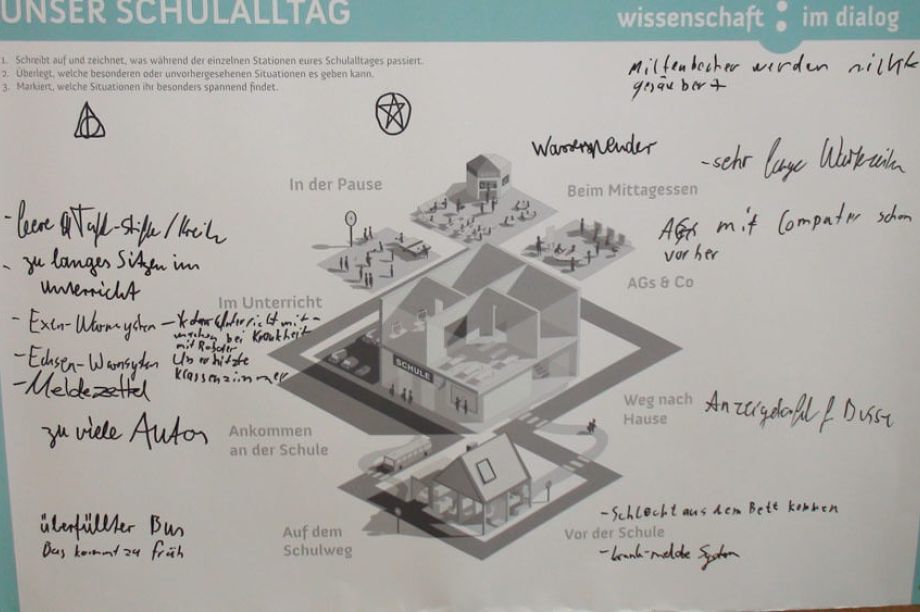 UNSER SCHULALLTAG
wissenschaft : im dialog
1. Schreibt auf und zeichnet, was während der einzelnen Stationen eures Schulalltages passiert.
2. Überlegt, welche besonderen oder unvorhergesehenen Situationen es geben kann.
3. Markiert, welche Situationen ihr besonders spannend findet.
werden nicht
gesäubert
Wasserspender
- sehr lange Wartezeiten
In der Pause
Beim Mittagessen
AGs mit Computer schon
vorher
AGs & Co
- leere Tafel-Stifte / Kreide
- zu langes Sitzen im
unterricht
Im Unterricht
- Echsen-Warnsystem
- Meldezettel
Klassenzimmer
SCHULE
zu viele Autos
Ankommen
an der Schule
Weg nach
Hause
Anzeigetafel f. Busse
überfüllter Bus
Bus kommt zu früh
Auf dem
Schulweg
- Schlecht aus dem Bett kommen
Vor der Schule
- krank-melde System